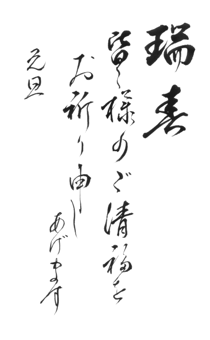 瑞春
皆々様のご清福を
お祈り申し
あげます
元旦